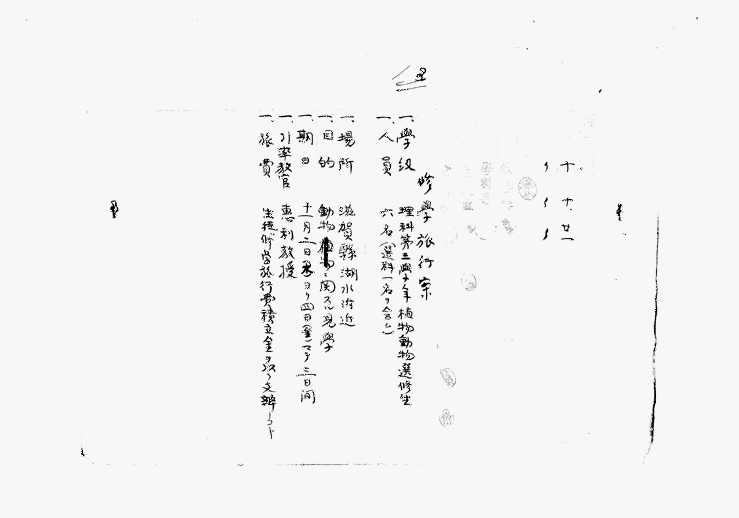 十、十、廿一
修學旅行案
一、學級 理科第三學年植物動物選修生
一、人員 六名（選科一名ヲ含ム）
一、場所 滋賀縣湖水附近
一、目的 動物ニ関スル見學
一、期日 十一月二日（水）ヨリ四日（金）マデ三日間
一、引率教官 惠利教授
一、旅費 生徒修学旅行費積立金ヲ以テ支辨ノコト